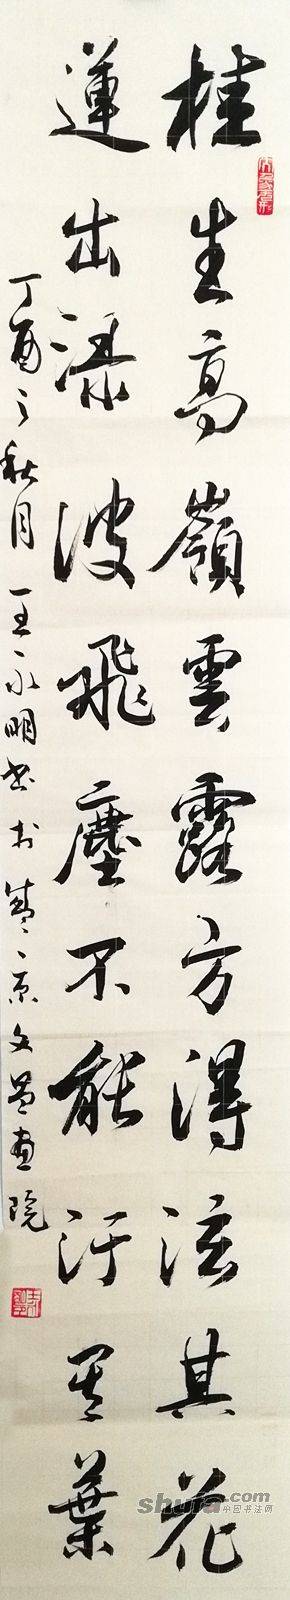 桂生高嶺雲露方得泫其花
蓮出淥波飛塵不能汙其葉
丁酉之秋月王永明书于
文昌画院
shufa.com
中国书法网